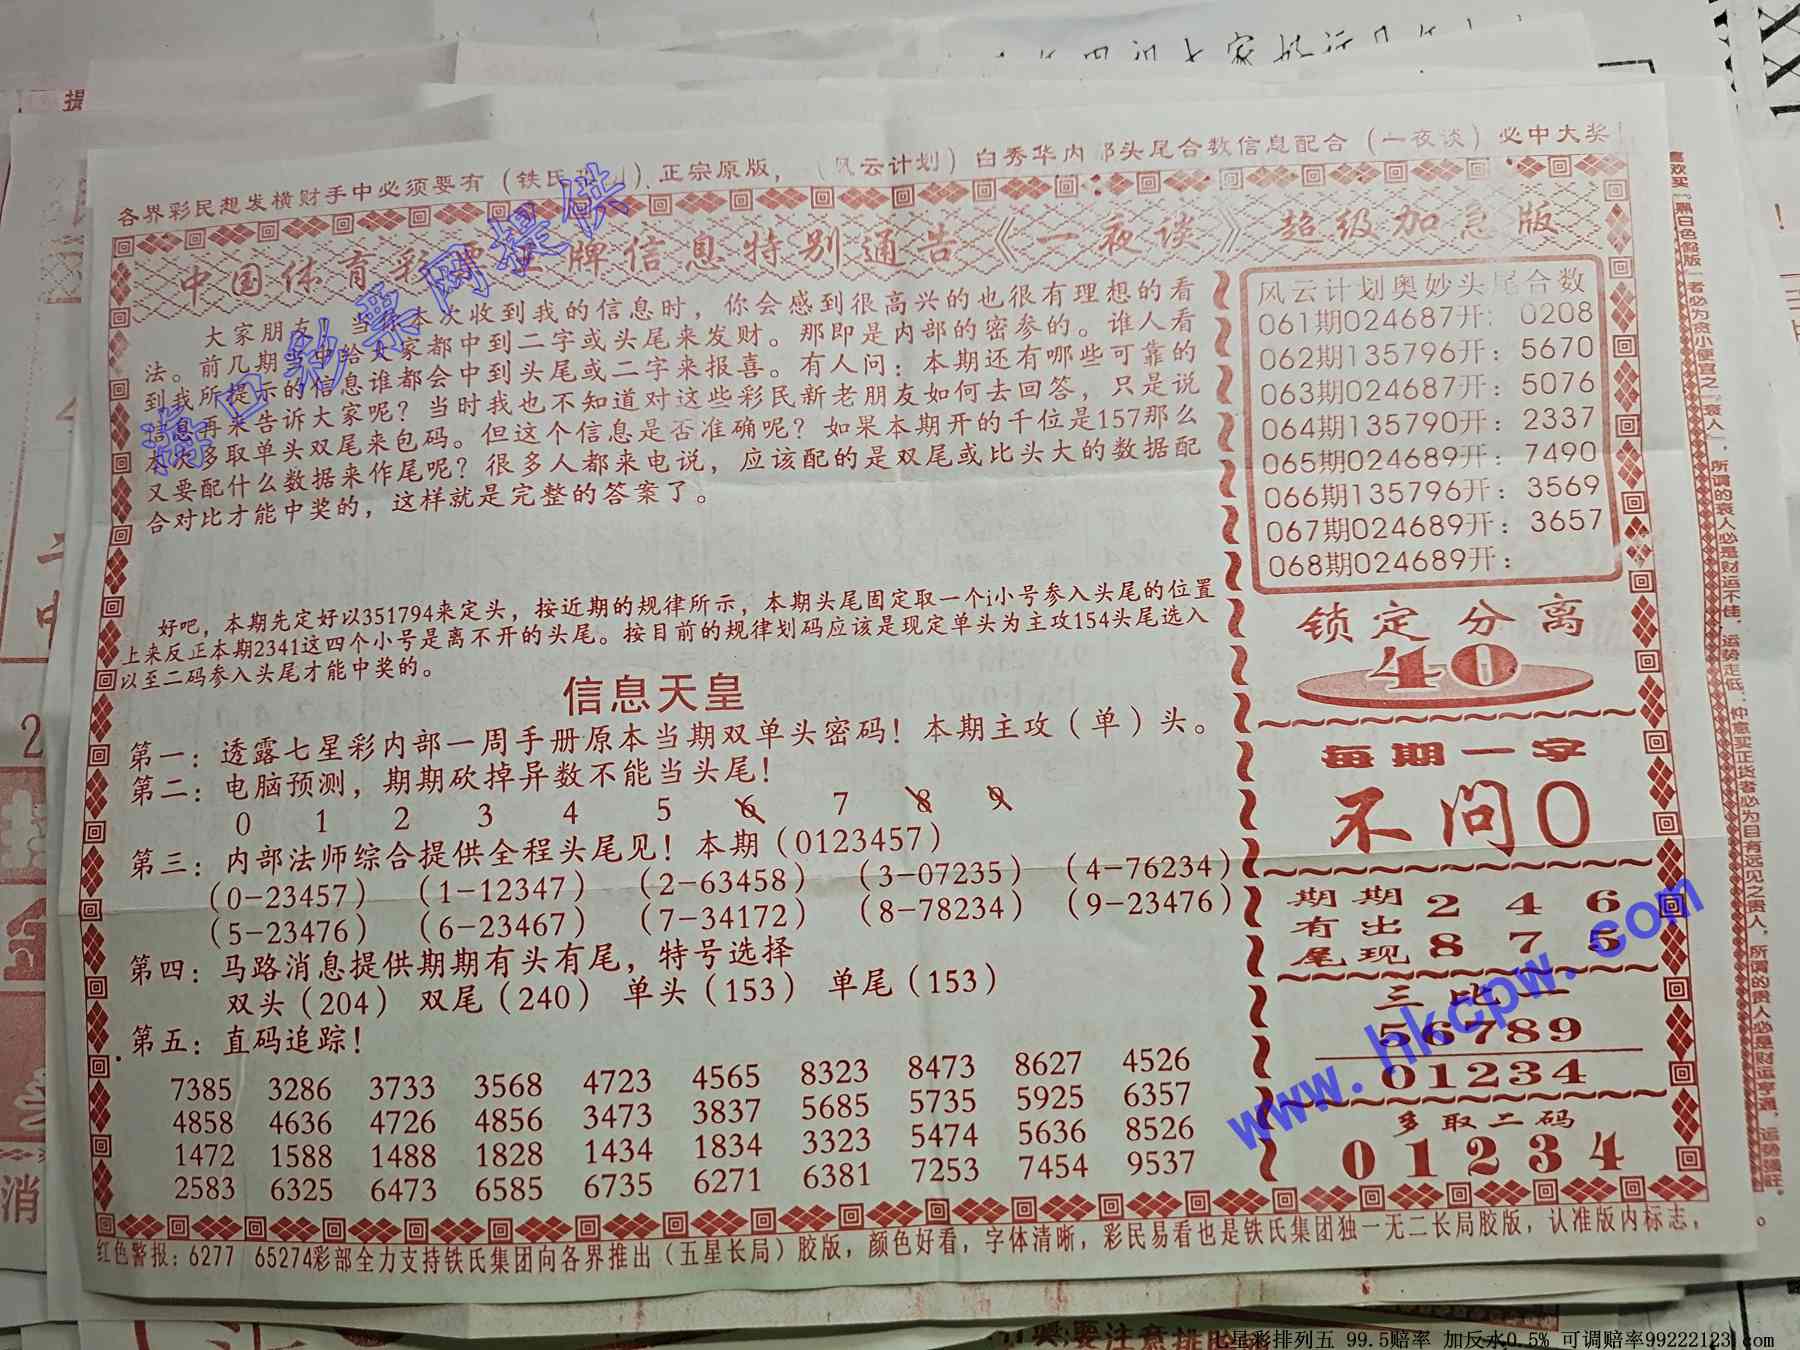 各界彩民想发横财手中必须要有（铁氏 ）.正宗原版，（风云计划）白秀华内 头尾合数信息配合（一夜谈）必中大奖！
中国体育彩票 牌信息特别通告《一夜谈》超级加急版
大家朋友 本次收到我的信息时，你会感到很高兴的也很有理想的看
法。前几期 给大家都中到二字或头尾来发财。那即是内部的密参的。谁人看
到我所提示的信息谁都会中到头尾或二字来报喜。有人问：本期还有哪些可靠的
信息再来告诉大家呢？当时我也不知道对这些彩民新老朋友如何去回答，只是说
本次多取单头双尾来包码。但这个信息是否准确呢？如果本期开的千位是157那么
又要配什么数据来作尾呢？很多人都来电说，应该配的是双尾或比头大的数据配
合对比才能中奖的，这样就是完整的答案了。
好吧，本期先定好以351794来定头，按近期的规律所示，本期头尾固定取一个i小号参入头尾的位置
上来反正本期2341这四个小号是离不开的头尾。按目前的规律划码应该是现定单头为主攻154头尾选入
以至二码参入头尾才能中奖的。
信息天皇
第一：透露七星彩内部一周手册原本当期双单头密码！本期主攻（单）头。
第二：电脑预测，期期砍掉异数不能当头尾！
0 1 2 3 4 5 6 7 8 9
第三：内部法师综合提供全程头尾见！本期（0123457）
（0-23457） （1-12347） （2-63458） （3-07235） （4-76234）
（5-23476） （6-23467） （7-34172） （8-78234） （9-23476）
第四：马路消息提供期期有头有尾，特号选择
双头（204） 双尾（240） 单头（153） 单尾（153）
第五：直码追踪！
7385 3286 3733 3568 4723 4565 8323 8473 8627 4526
4858 4636 4726 4856 3473 3837 5685 5735 5925 6357
1472 1588 1488 1828 1434 1834 3323 5474 5636 8526
2583 6325 6473 6585 6735 6271 6381 7253 7454 9537
风云计划奥妙头尾合数
061期024687开：0208
062期135796开：5670
063期024687开：5076
064期135790开：2337
065期024689开：7490
066期135796开：3569
067期024689开：3657
068期024689开：
锁定分离
40
每期一字
不问0
期期 2 4 6
有出
尾现 8 7 5
三比一
56789
01234
多取二码
01234
红色警报：6277 65274彩部全力支持铁氏集团向各界推出（五星长局）胶版，颜色好看，字体清晰，彩民易看也是铁氏集团独一无二长局胶版，认准版内标志，
喜欢买“黑白色假版”者必为贪小便宜之“衰人”，所谓的衰人必是财运不佳，运势走低；仲意买正货者必为目有远见之贵人，所谓的贵人必是财运亨通，运势强旺。
海口彩票网提供
www.hkcpw.com
七星彩排列五 99.5赔率 加反水0.5% 可调赔率99222123.com